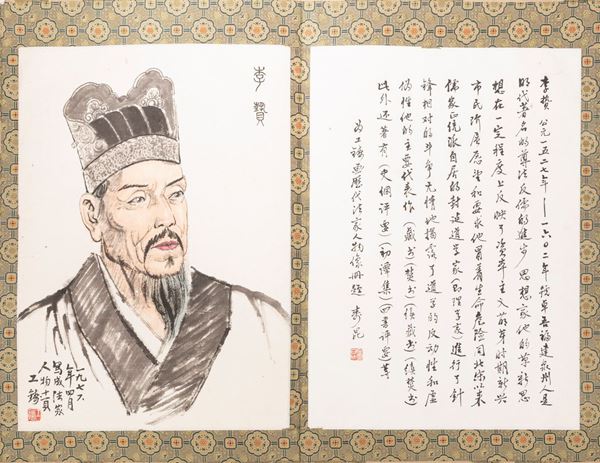 李贄 公元一五二七年——一六〇二年號卓吾福建泉州人是
明代著名的尊法反儒的進步思想家他的革新思
想在一定程度上反映了資本主义萌芽時期新兴
市民階層愿望和要求他冒着生命危險同北宋以来
儒家正統派自居的封建道学家(即理学家)進行了針
锋相对的斗争无情地揭露了道学的反动性和虚
伪性他的主要代表作(藏书)(焚书)(續藏书)(續焚书)
此外还著有(史綱評要)(初潭集)(四書評)等
为工画歷代法家人物像册题
李贄
一九七六
年四月
寫成法家
人物十頁
工